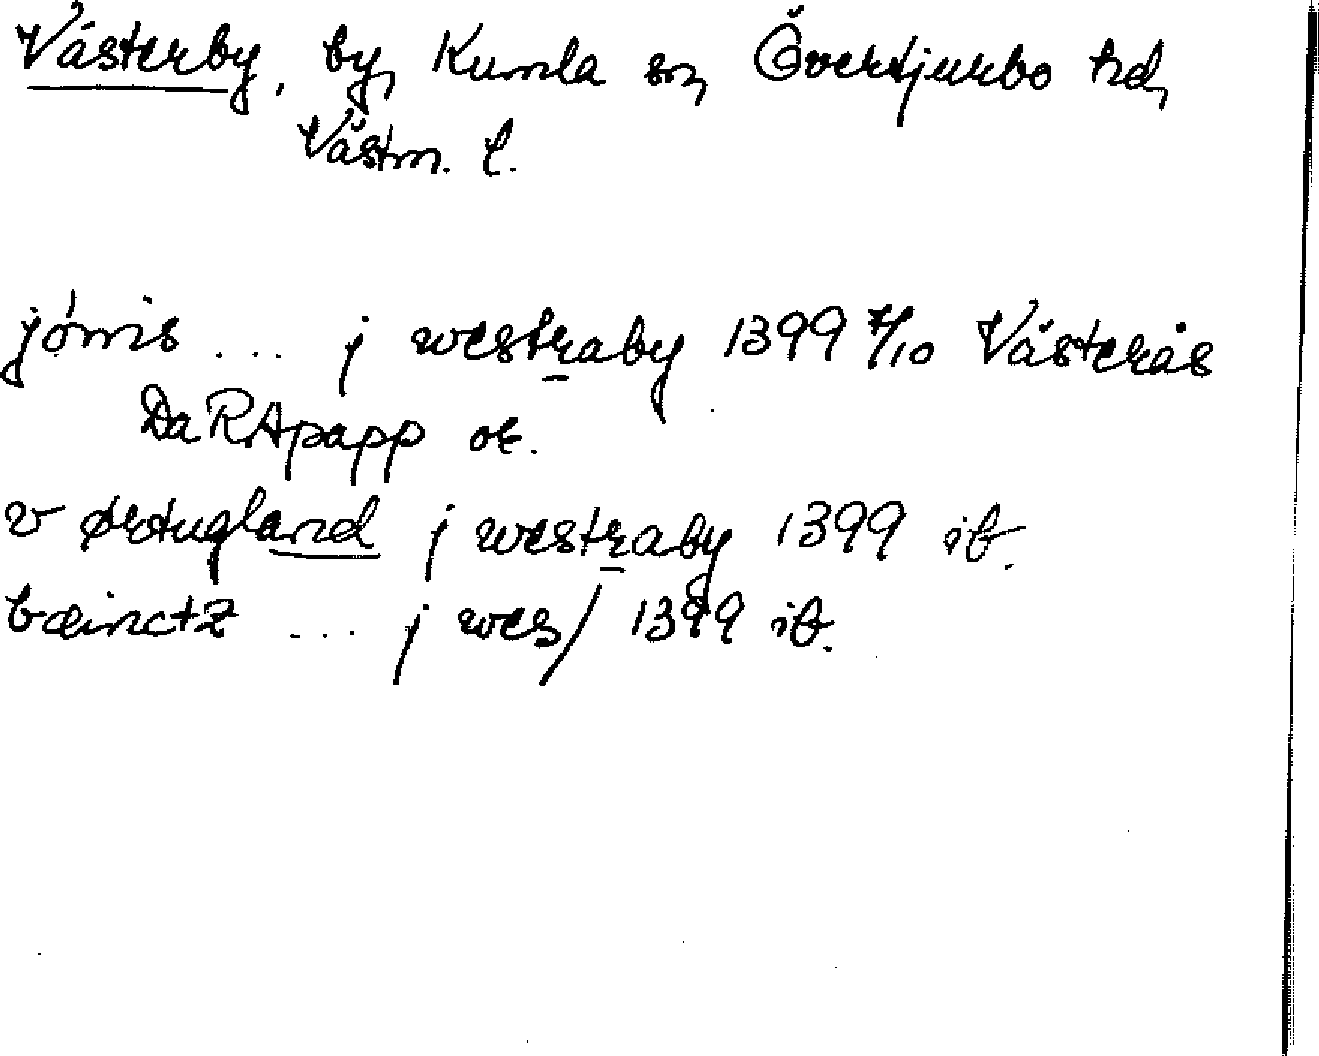 Västerby, by, Kumla sn, Övertjurbo hd,
Västm. l.
jónis ... j westraby 1399 7/10 Västerås
DaRApapp or.
v ørtugland j westraby 1399 ib.
bæinctz ... j wes/ 1399 ib.